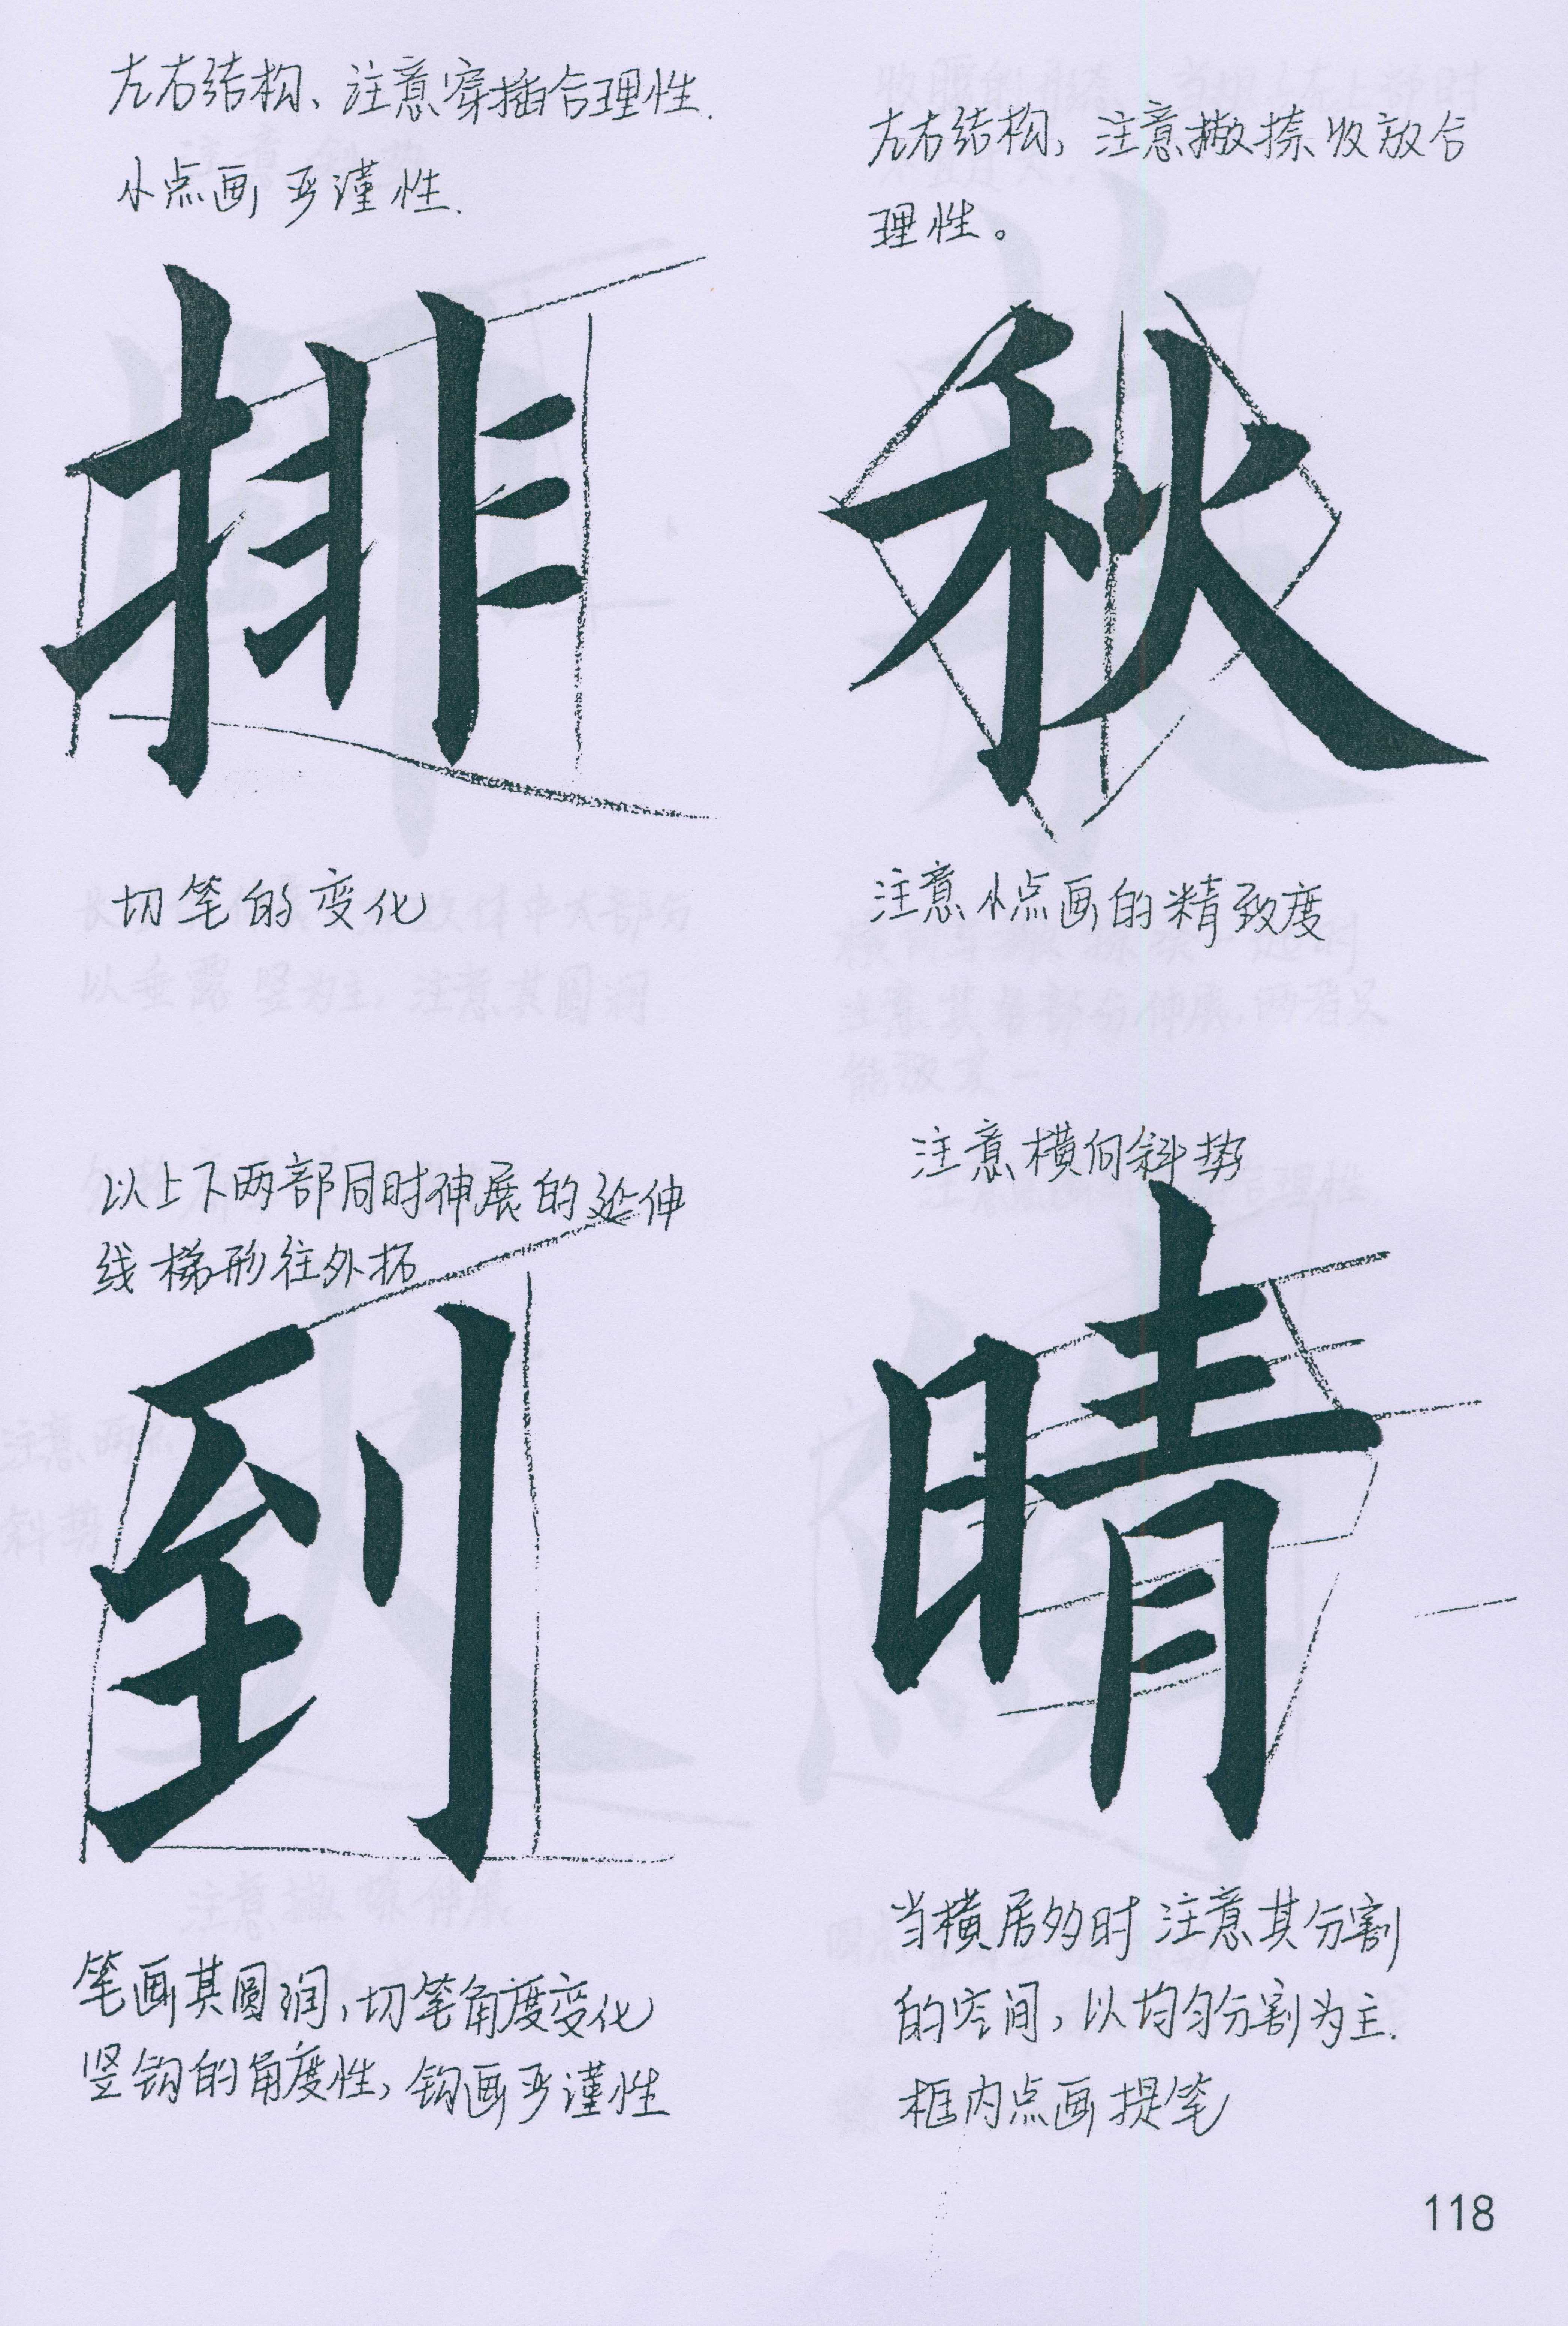 左右结构、注意穿插合理性.
小点画严谨性.
排
切笔的变化
左右结构，注意撇捺收放合
理性。
秋
注意小点画的精致度
以上下两部同时伸展的延伸
线梯形往外拓
到
笔画其圆润，切笔角度变化
竖钩的角度性，钩画严谨性
注意横向斜势
晴
当横居多时 注意其分割
的空间，以均匀分割为主.
框内点画提笔
118